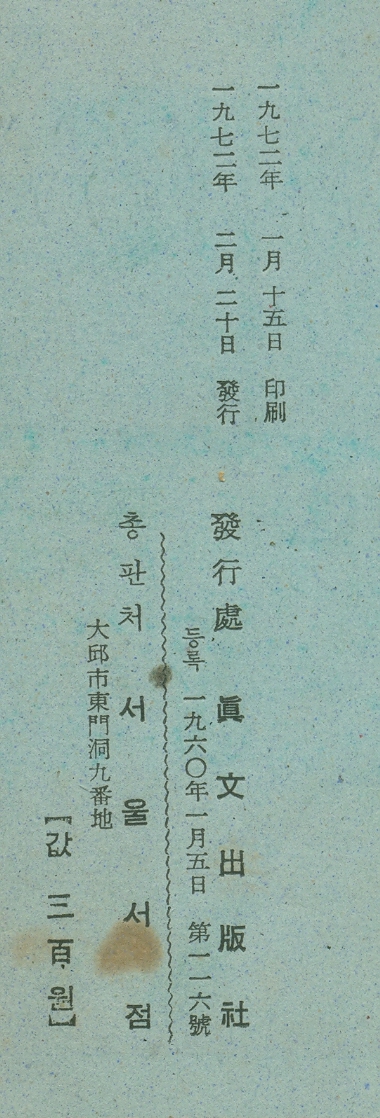 一九七二年 一月 十五日 印刷
一九七二年 二月 二十日 發行
發行處 眞文出版社
등록 一九六〇年 一月 五日 第一一六號
총판처 서울서점
大邱市東門洞九番地
【값 三百원】